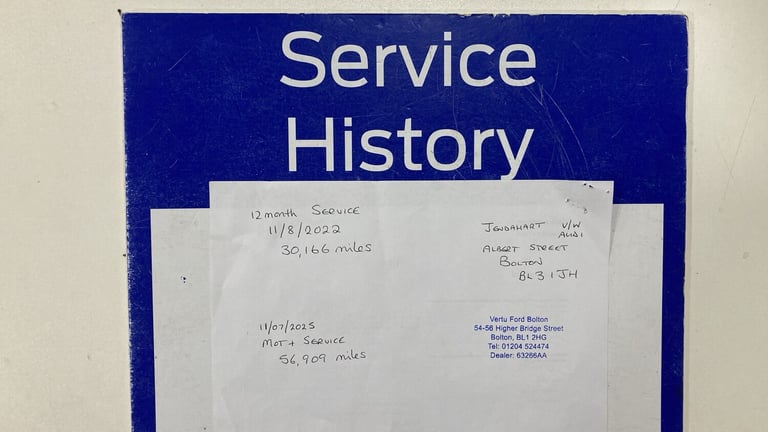 Service
History
12 month SERVICE
11/8/2022
30,166 miles
JENDAHART V/W
AUDI
ALBERT STREET
BOLTON
BL3 1JH
11/07/2025
MOT + SERVICE
56,909 miles
Vertu Ford Bolton
54-56 Higher Bridge Street
Bolton, BL1 2HG
Tel: 01204 524474
Dealer: 63266AA